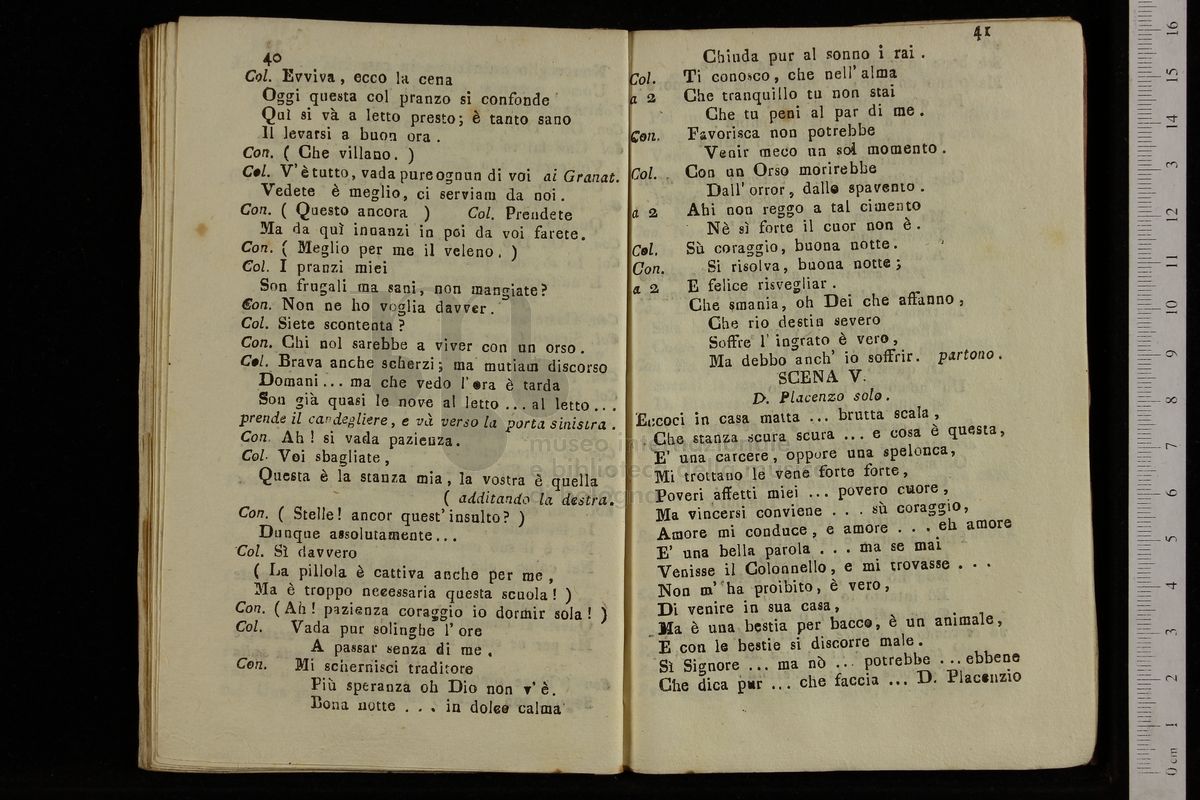 40
Col. Evviva, ecco la cena
Oggi questa col pranzo si confonde
Quì si và a letto presto; è tanto sano
Il levarsi a buon ora.
Con. ( Che villano. )
Col. V' è tutto, vada pure ognun di voi ai Granat.
Vedete è meglio, ci serviam da noi.
Con. ( Questo ancora ) Col. Prendete
Ma da quì innanzi in poi da voi farete.
Con. ( Meglio per me il veleno. )
Col. I pranzi miei
Son frugali ma sani, non mangiate?
Con. Non ne ho voglia davver.
Col. Siete scontenta?
Con. Chi nol sarebbe a viver con un orso.
Col. Brava anche scherzi; ma mutiam discorso
Domani... ma che vedo l'ora è tarda
Son già quasi le nove al letto ... al letto...
prende il candegliere, e và verso la porta sinistra.
Con. Ah! si vada pazienza.
Col. Voi sbagliate,
Questa è la stanza mia, la vostra è quella
( additando la destra.
Con. ( Stelle! ancor quest' insulto? )
Dunque assolutamente...
Col. Sì davvero
( La pillola è cattiva anche per me,
Ma è troppo necessaria questa scuola! )
Con. (Ah! pazienza coraggio io dormir sola! )
Col. Vada pur solinghe l' ore
A passar senza di me.
Con. Mi schernisci traditore
Più speranza oh Dio non v' è.
Bona notte . . . in dolce calma
41
Chiuda pur al sonno i rai.
Col. Ti conosco, che nell' alma
a 2 Che tranquillo tu non stai
Che tu peni al par di me.
Con. Favorisca non potrebbe
Venir meco un sol momento.
Col. Con un Orso morirebbe
Dall' orror, dallo spavento.
a 2 Ahi non reggo a tal cimento
Nè sì forte il cuor non è.
Col. Sù coraggio, buona notte.
Con. Si risolva, buona notte;
a 2 E felice risvegliar.
Che smania, oh Dei che affanno,
Che rio destin severo
Soffre l' ingrato è vero,
Ma debbo anch' io soffrir. partono.
SCENA V.
D. Placenzo solo.
Eccoci in casa matta ... brutta scala,
Che stanza scura scura ... e cosa è questa,
E' una carcere, oppure una spelonca,
Mi trottano le vene forte forte,
Poveri affetti miei ... povero cuore,
Ma vincersi conviene . . . sù coraggio,
Amore mi conduce, e amore . . . eh amore
E' una bella parola . . . ma se mai
Venisse il Colonnello, e mi trovasse . . .
Non m' ha proibito, è vero,
Di venire in sua casa,
Ma è una bestia per bacco, è un animale,
E con le bestie si discorre male.
Sì Signore ... ma nò ... potrebbe ... ebbene
Che dica pur ... che faccia ... D. Placenzio
museo internazionale
e biblioteca della musica